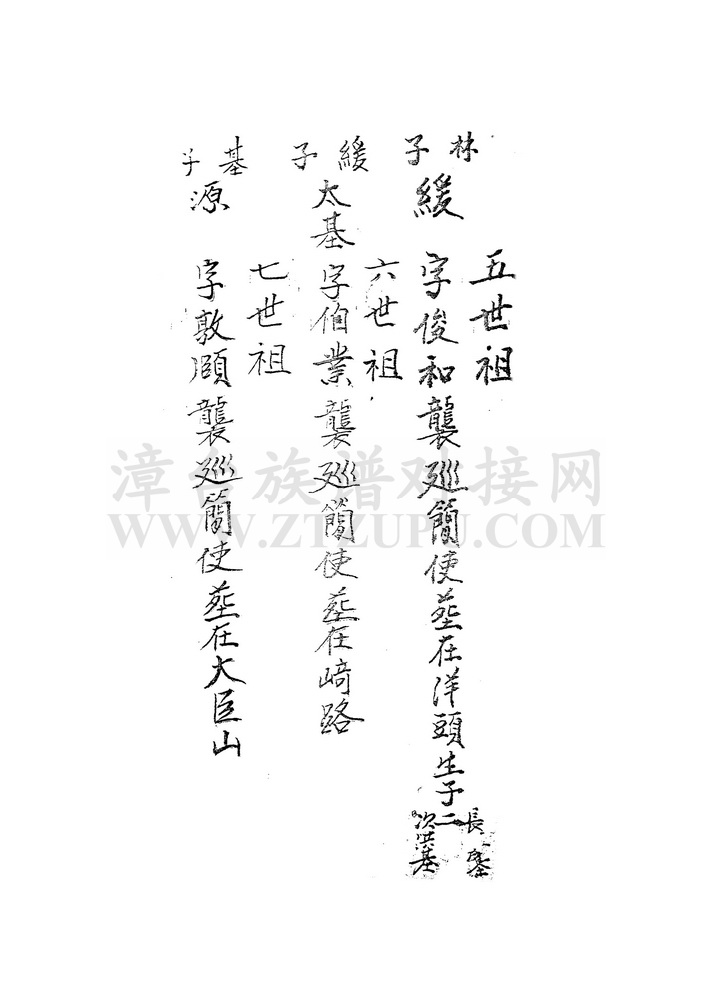 五世祖
林子
緩
字俊和襲廵簡使塟在洋頭生子二
長
次洪基
六世祖
緩子
太基
字伯業襲廵簡使塟在﨑路
七世祖
基子
源
字敦頤襲廵簡使塟在大臣山
漳台族谱对接网
WWW.ZTZUPU.COM